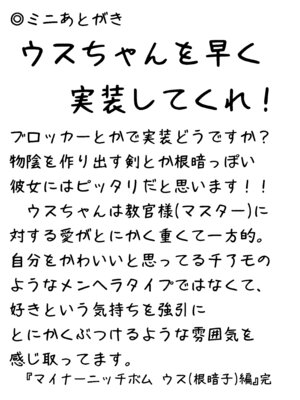 ◎ミニあとがき
ウスちゃんを早く
実装してくれ！
ブロッカーとかで実装どうですか？
物陰を作り出す剣とか根暗っぽい
彼女にはピッタリだと思います！！
ウスちゃんは教官様(マスター)に
対する愛がとにかく重くて一方的。
自分をかわいいと思ってるチアモの
ようなメンヘラタイプではなくて、
好きという気持ちを強引に
とにかくぶつけるような雰囲気を
感じ取ってます。
『マイナーニッチホム ウス(根暗子)編』完